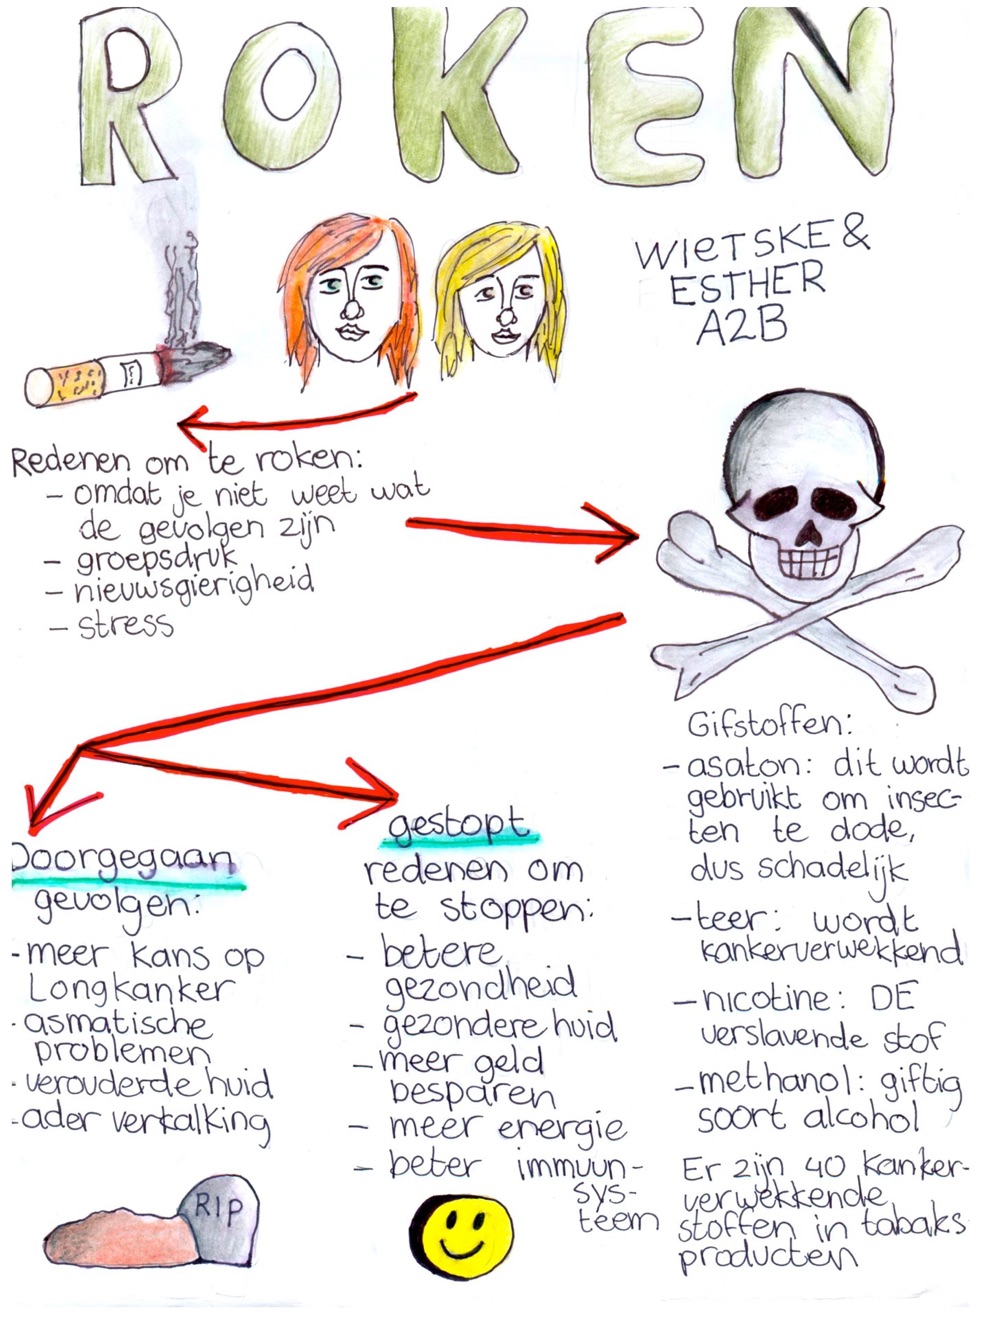 ROKEN
WIETSKE &
ESTHER
A2B
Redenen om te roken:
- omdat je niet weet wat
de gevolgen zijn
- groepsdruk
- nieuwsgierigheid
- stress
Gifstoffen:
- asaton: dit wordt
gebruikt om insec-
ten te dode,
dus schadelijk
- teer: wordt
kankerverwekkend
- nicotine: DE
verslavende stof
- methanol: giftig
soort alcohol
Er zijn 40 kanker-
verwekkende
stoffen in tabaks
producten
Doorgegaan
gevolgen:
- meer kans op
Longkanker
- asmatische
problemen
- verouderde huid
- ader verkalking
RIP
gestopt
redenen om
te stoppen:
- betere
gezondheid
- gezondere huid
- meer geld
besparen
- meer energie
- beter immuun-
sys-
teem